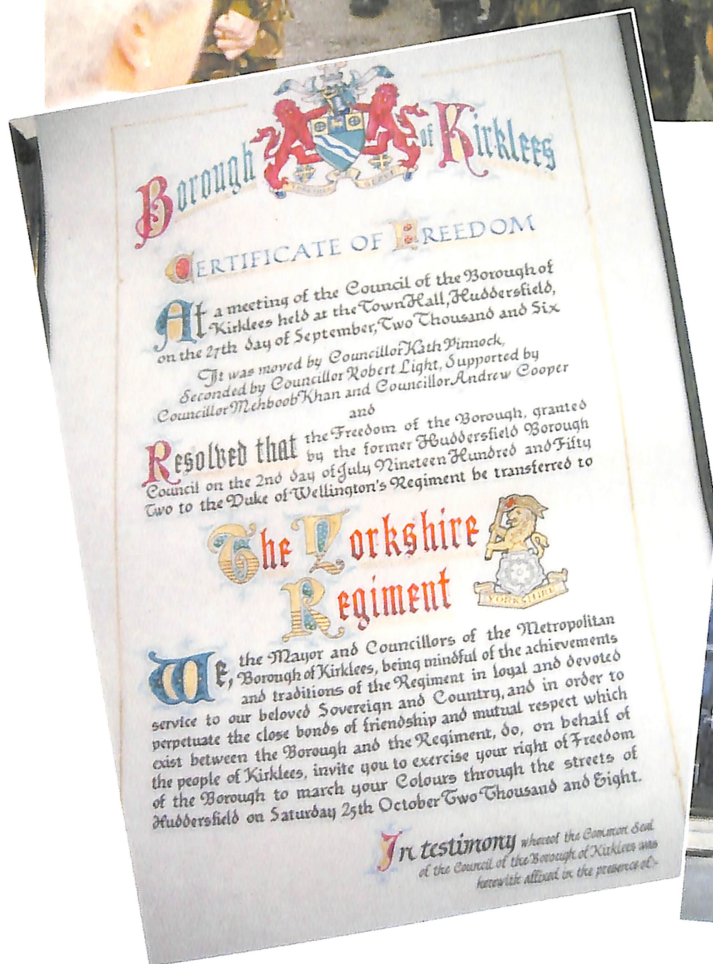 Borough of Kirklees
CERTIFICATE OF FREEDOM
At a meeting of the Council of the Borough of
Kirklees held at the Town Hall, Huddersfield,
on the 27th day of September, Two Thousand and Six
It was moved by Councillor Kath Pinnock,
Seconded by Councillor Robert Light, Supported by
Councillor Mehboob Khan and Councillor Andrew Cooper
and
Resolved that the Freedom of the Borough, granted
by the former Huddersfield Borough
Council on the 2nd day of July Nineteen Hundred and Fifty
Two to the Duke of Wellington's Regiment be transferred to
The Yorkshire
Regiment
YORKSHIRE
We, the Mayor and Councillors of the Metropolitan
Borough of Kirklees, being mindful of the achievements
and traditions of the Regiment in loyal and devoted
service to our beloved Sovereign and Country, and in order to
perpetuate the close bonds of friendship and mutual respect which
exist between the Borough and the Regiment, do, on behalf of
the people of Kirklees, invite you to exercise your right of Freedom
of the Borough to march your Colours through the streets of
Huddersfield on Saturday 25th October Two Thousand and Eight.
In testimony whereof the Common Seal
of the Council of the Borough of Kirklees was
herewith affixed in the presence of:-